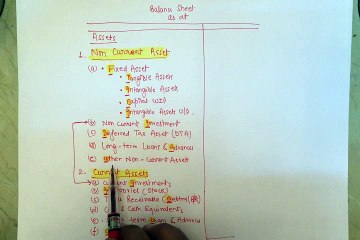 Balance Sheet
as at
Assets
1. Non Current Asset
(a) • Fixed Asset
• Tangible Assets
• Intangible Assets
• Capital WIP
• Intangible Assets U/D
(b) Non Current Investment
(c) Deferred Tax Asset (DTA)
(d) Long-term Loans & Advances
(e) Other Non-Current Assets
2. Current Assets
(a) Current Investments
(Stock)
(c) Receivable
(d) Cash Equivalents
(e) term Loans & Advances
(f)